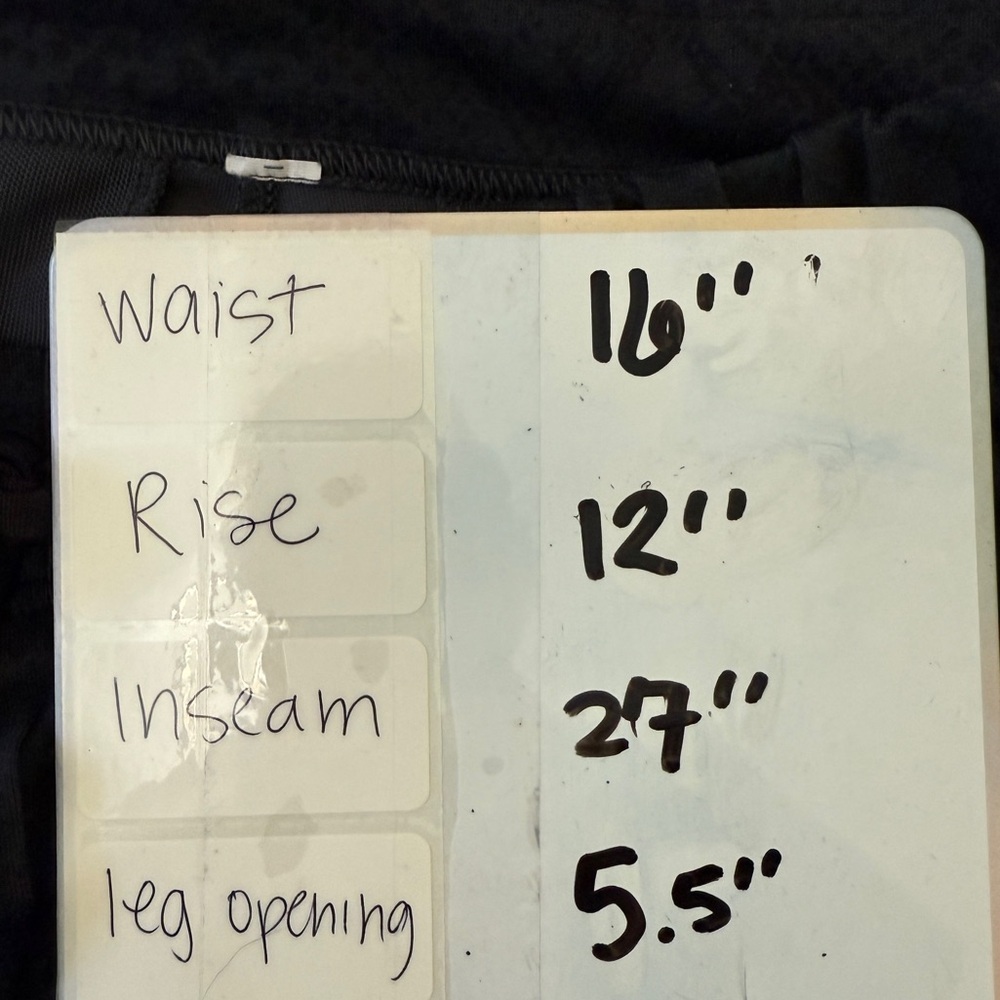 Waist 16"
Rise 12"
Inseam 27"
leg opening 5.5"